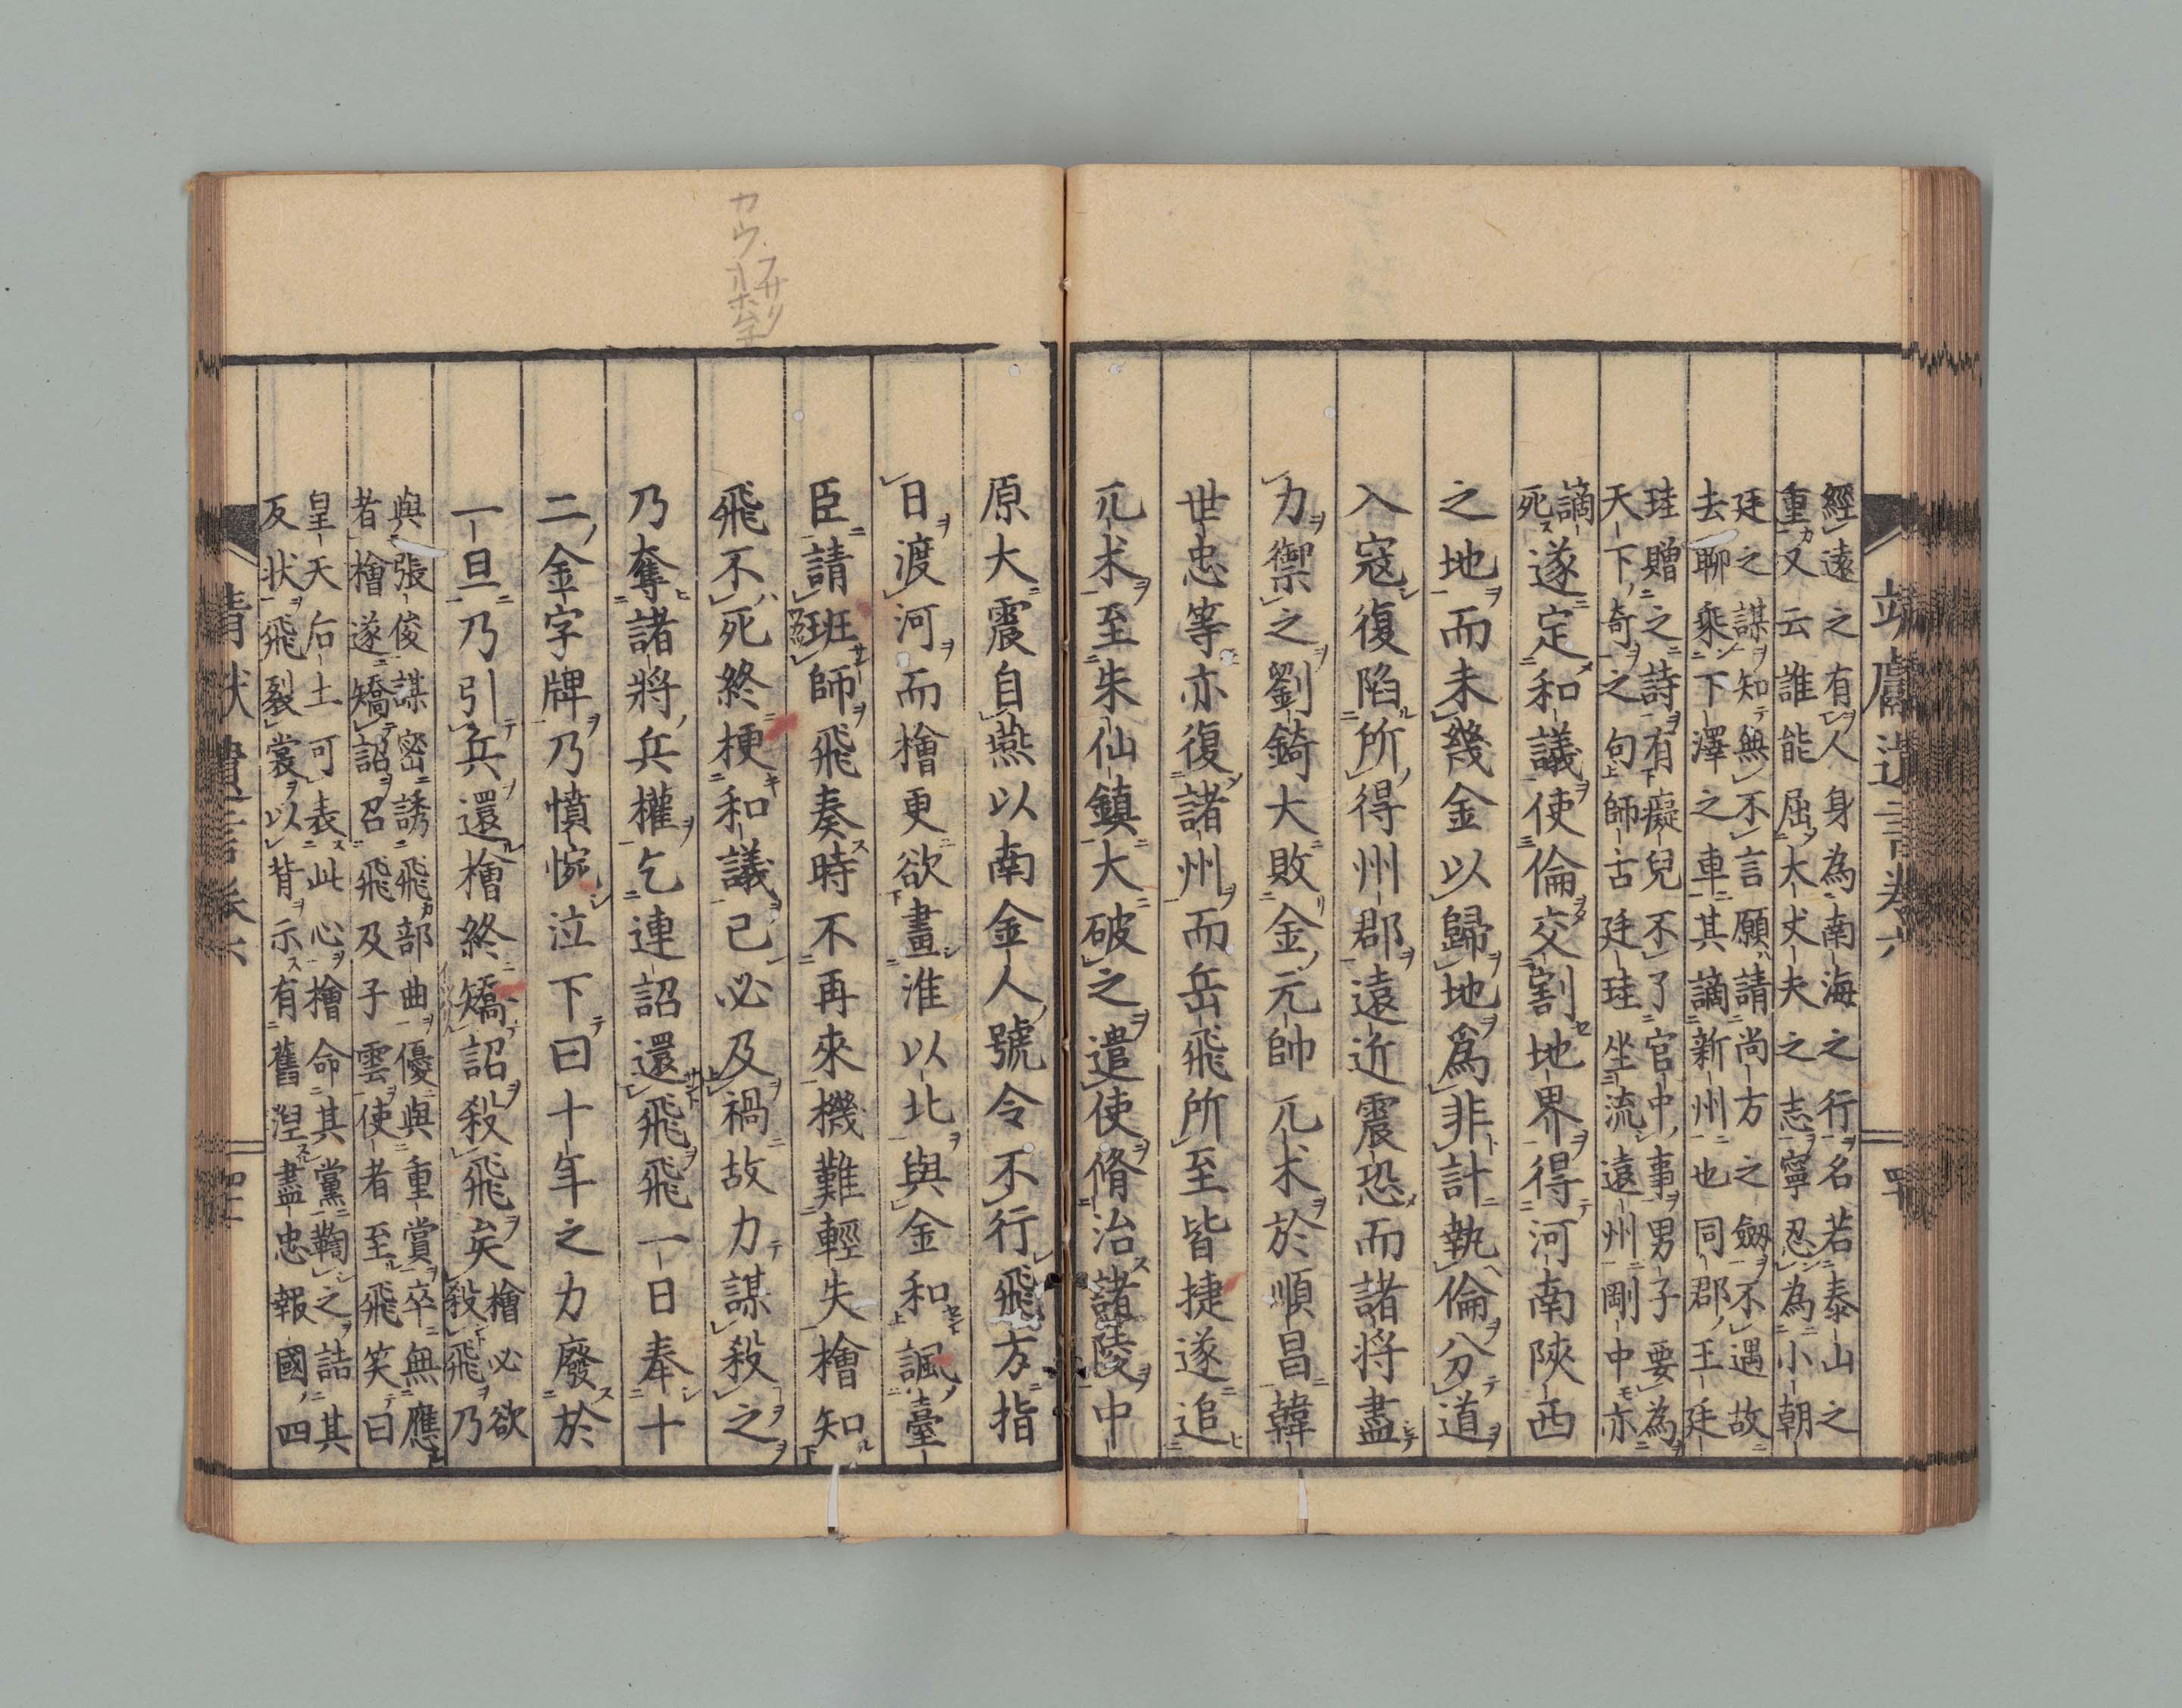 經遠之有人身為南海之行名若泰山之
重又云誰能屈大丈夫之志寧忍為小朝
廷之謀知無不言願請尚方之劔不遇故
去聊乘下澤之車其謫新州也同郡王廷
珪贈之詩有癡兒不了官中事男子要為
天下奇之句師古廷珪坐流遠州剛中亦
謫
死遂定和議使倫交割地界得河南陝西
之地而未幾金以歸地爲非計執倫分道
入寇復陷所得州郡遠近震恐而諸将盡
力禦之劉錡大敗金元帥兀朮於順昌韓
世忠等亦復諸州而岳飛所至皆捷遂追
兀朮至朱仙鎮大破之遣使脩治諸陵中
原大震自燕以南金人號令不行飛方指
日渡河而檜更欲畫淮以北與金和諷臺
臣請班師飛奏時不再來機難輕失檜知
飛不死終梗和議己必及禍故力謀殺之
乃奪諸將兵權乞連詔還飛飛一日奉十
二金字牌乃憤惋泣下曰十年之力廢於
一旦乃引兵還檜終矯詔殺飛矣檜必欲
殺飛乃
與張俊謀密誘飛部曲優與重賞卒無應
者檜遂矯詔召飛及子雲使者至飛笑曰
皇天后土可表此心檜命其黨鞫之詰其
反状飛裂裳以背示有舊涅盡忠報國四